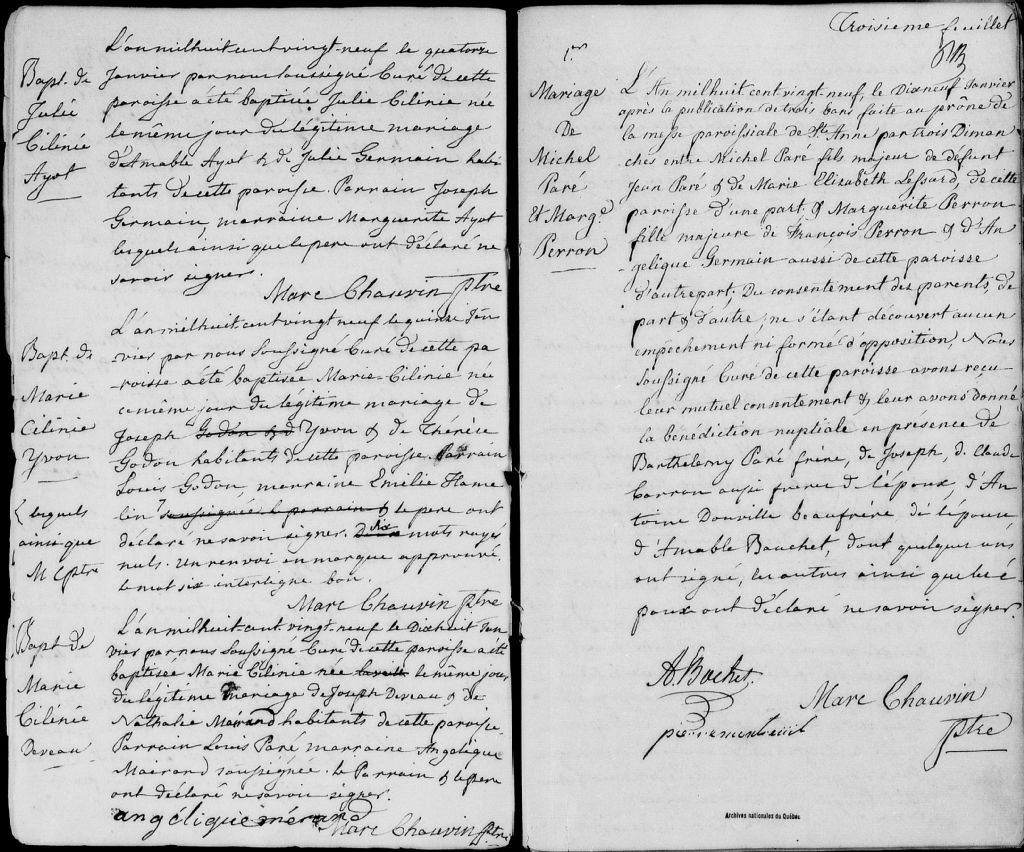 Bapt. de
Julie
Cilinie
Ayot
L'an mil huit cent vingt-neuf le quatorze
Janvier par nous soussigné Curé de cette
paroisse a été baptisée Julie Cilinie née
le même jour du légitime mariage
d'Amable Ayot & de Julie Germain habi-
tants de cette paroisse. Parrain Joseph
Germain, marraine Marguerite Ayot
lesquels ainsi que le pere ont déclaré ne
savoir signer.
Marc Chauvin Ptre
Bapt. de
Marie
Cilinie
Yvon
{ lesquels
ainsi que
M C ptre
L'an mil huit cent vingt neuf le quinze Jan
vier par nous soussigné Curé de cette pa
roisse a été baptisée Marie-Cilinie née
ce même jour du légitime mariage de
Joseph Godon & d Yvon & de Thérèse
Godon habitants de cette paroisse. Parrain
Louis Godon, marraine Emilie Hame
lin soussignée. le parrain & le pere ont
déclaré ne savoir signer. six mots rayés
nuls. Un renvoi en marque approuvé.
le mot six interligne bon.
Marc Chauvin Ptre
Bapt de
Marie
Cilinie
Deveau
L'an mil huit-cent-vingt-neuf le Dixhuit Jan
vier par nous soussigné Curé de cette paroisse a été
baptisée Marie Cilinie née la veille le même jour
du légitime mariage de Joseph Deveau & de
Nathalie Mairand habitants de cette paroisse.
Parrain Louis Paré marraine Angélique
Mairand soussignée. le Parrain & le pere
ont déclaré ne savoir signer.
angélique mérand
Marc Chauvin Ptre
Troisieme feuillet
1er
Mariage
De
Michel
Paré
Et Marg.e
Perron
L'An mil huit cent vingt-neuf, le Dix neuf Janvier
après la publication de trois bans faite au prône de
la messe paroissiale de Ste Anne par trois Diman
ches entre Michel Paré fils majeur de défunt
Jean Paré & de Marie Elizabeth Lessard, de cette
paroisse d'une part, & Marguerite Perron
fille majeure de François Perron & d'An
gelique Germain aussi de cette paroisse
d'autre part; Du consentement des parents, de
part & d'autre; ne s'étant découvert aucun
empechement ni formé d'opposition, Nous
soussigné Curé de cette paroisse avons reçu
leur mutuel consentement & leur avons donné
la bénédiction nuptiale en présence de
Barthélemy Paré frère, de Joseph, d. Claude
Carron aussi frere d l'époux, d'An
toine Douville beaufrére dé l'épouse
d'Amable Bauchet, dont quelques uns
ont signé, les autres ainsi que les é-
poux ont déclaré ne savoir signer.
A Bochet
Marc Chauvin
ptre
Archives nationales du Québec